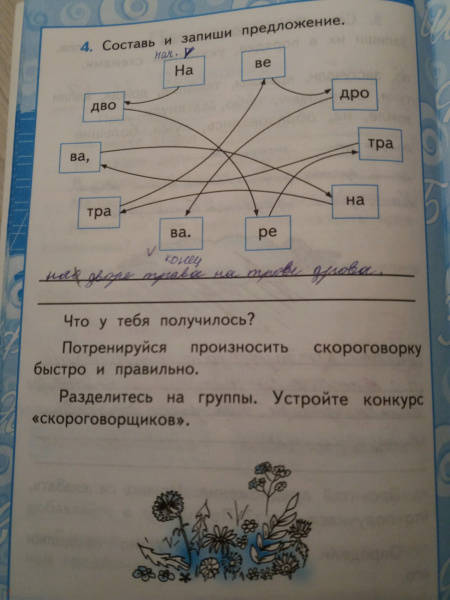 4. Составь и запиши предложение.
нач.
На
ве
дво
дро
ва,
тра
тра
на
ва.
ре
конец
на дворе трава на траве дрова.
Что у тебя получилось?
Потренируйся произносить скороговорку
быстро и правильно.
Разделитесь на группы. Устройте конкурс
«скороговорщиков».